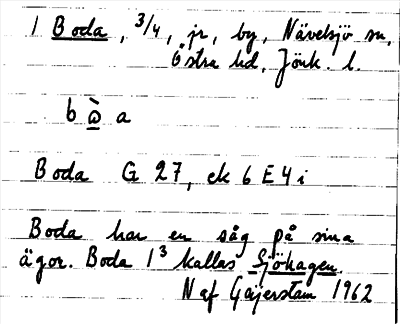 1 Boda, 3/4, jr, by, Nävelsjö sn,
Östra hd, Jönk. l.
b ὼ a
Boda G 27, ek 6 E 4 i
Boda har en såg på sina
ägor. Boda 1³ kallas Sjöhagen.
N af Gäijerstam 1962